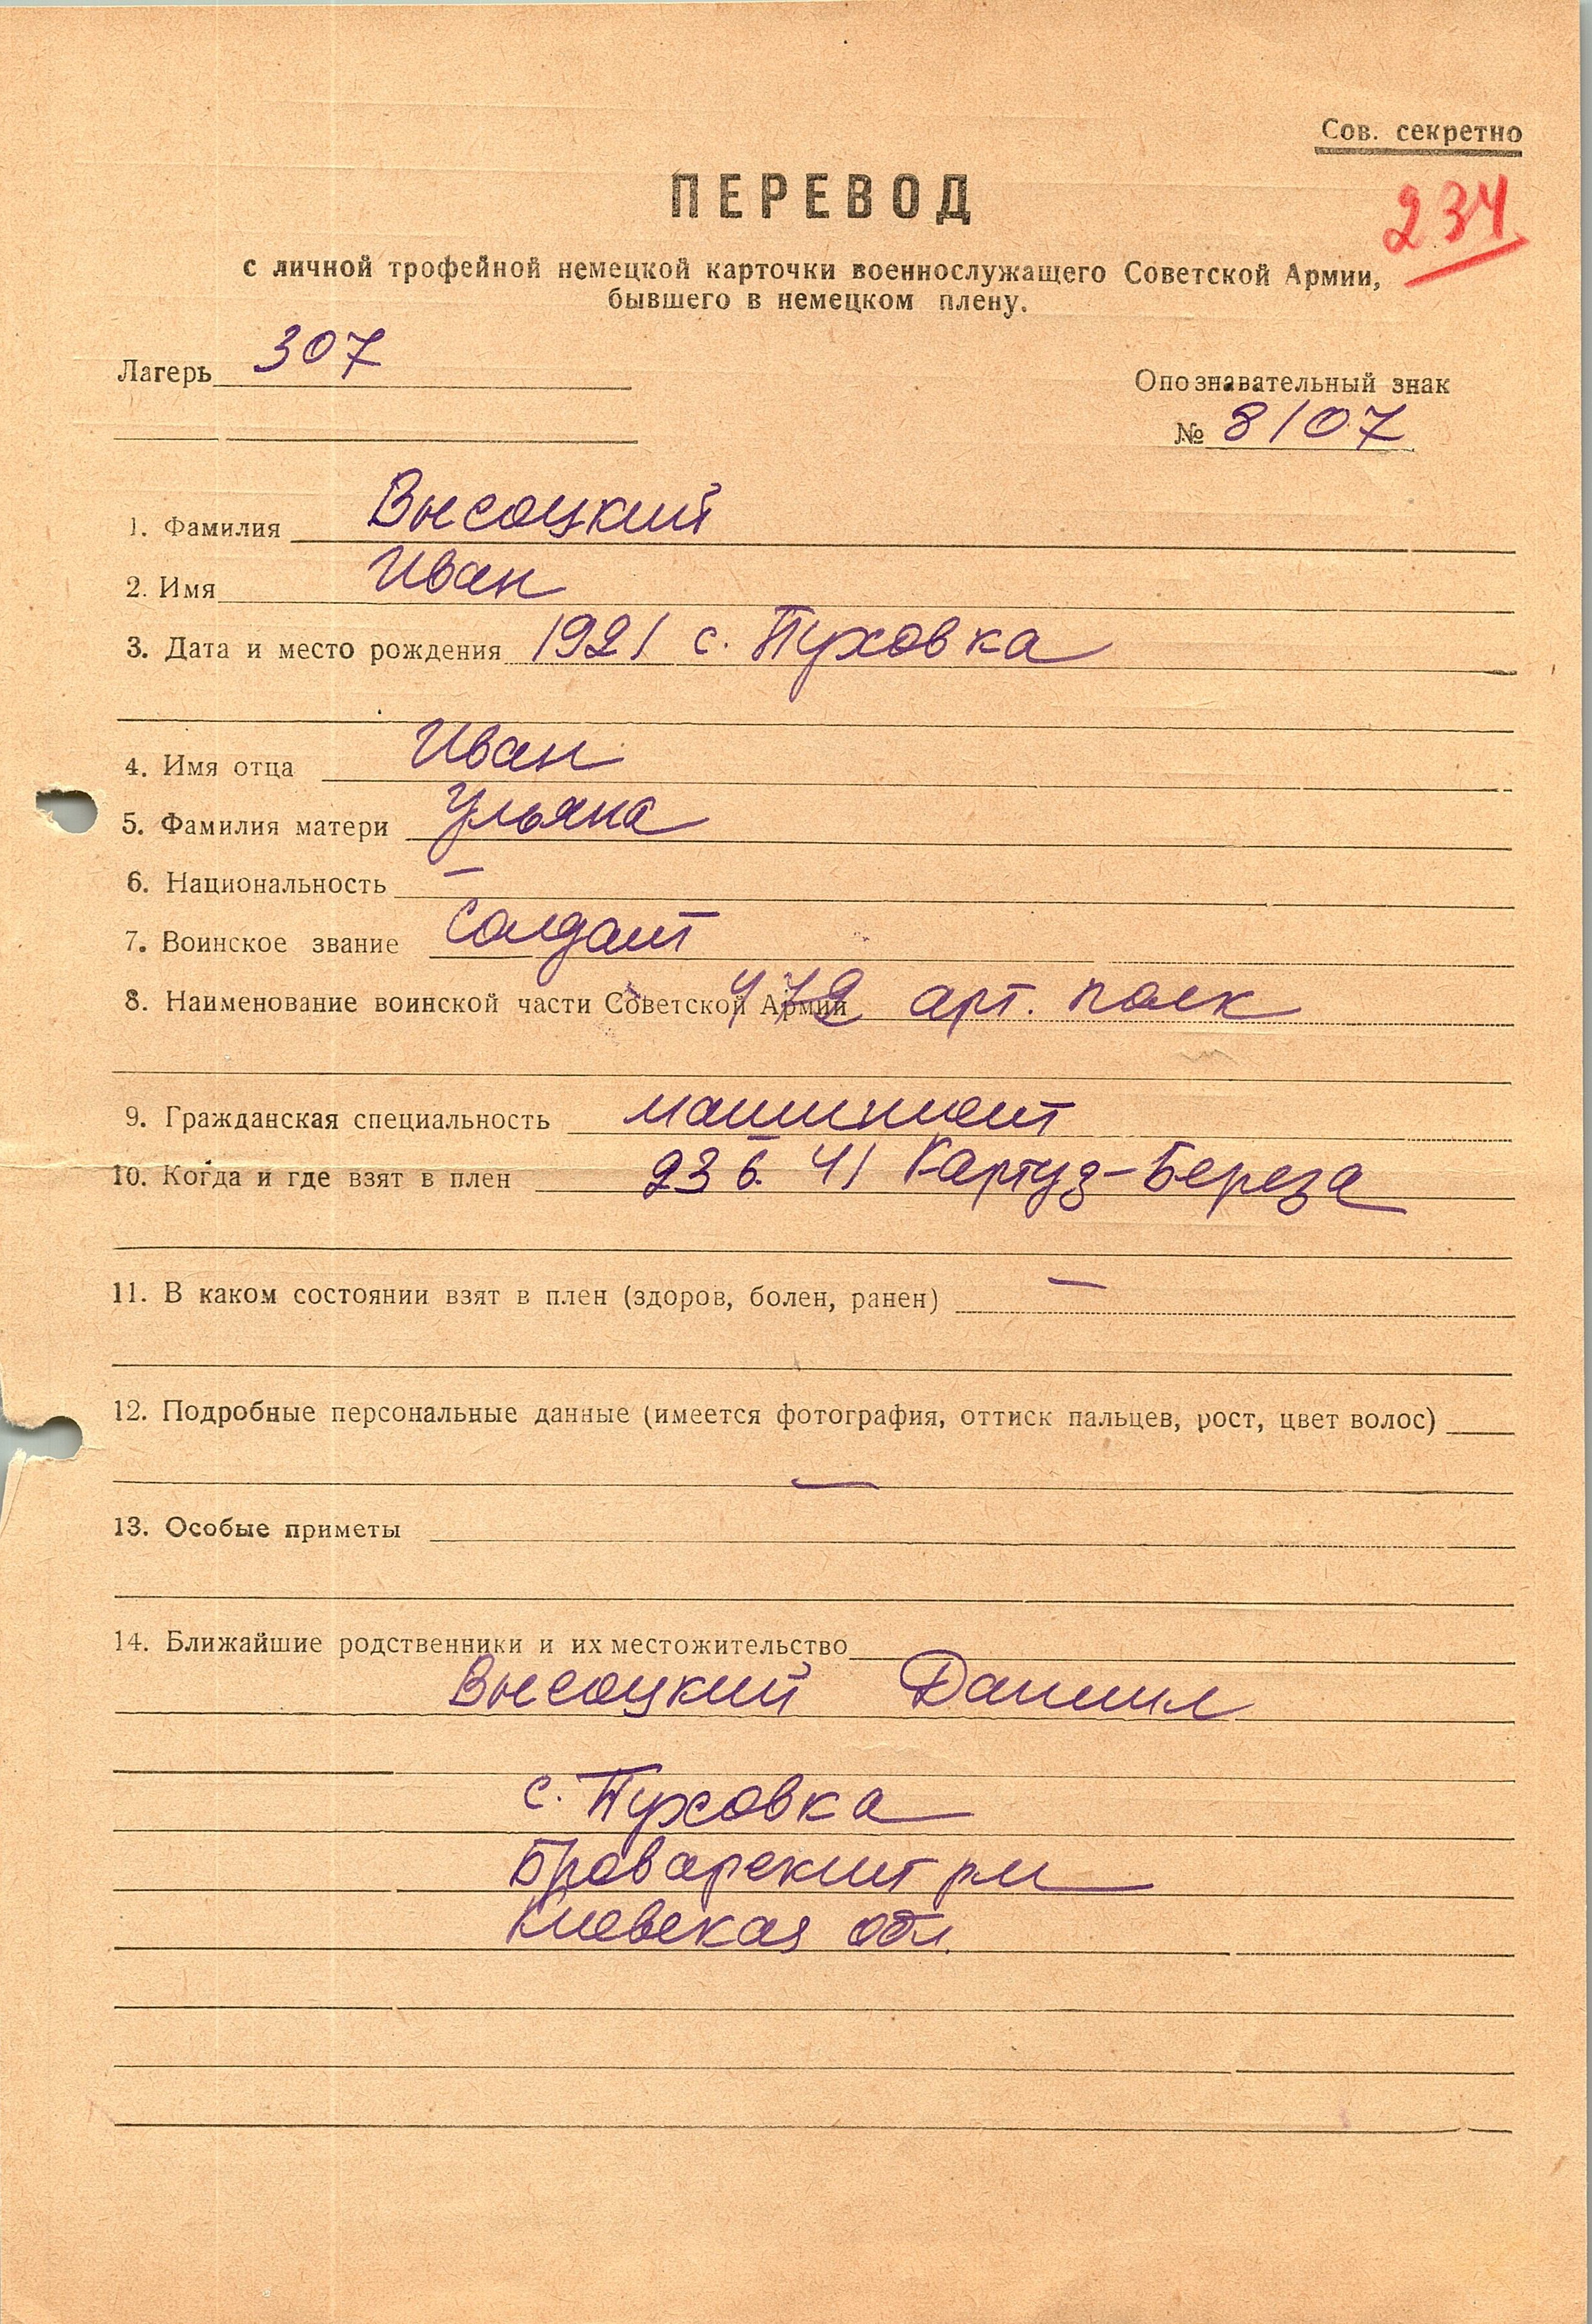 Сов. секретно
ПЕРЕВОД
234
с личной трофейной немецкой карточки военнослужащего Советской Армии,
бывшего в немецком плену.
Лагерь 307
Опознавательный знак
№ 8107
1. Фамилия Высоцкий
2. Имя Иван
3. Дата и место рождения 1921 с. Пуховка
4. Имя отца Иван
5. Фамилия матери Ульяна
6. Национальность —
7. Воинское звание солдат
8. Наименование воинской части Советской Армии 472 арт. полк
9. Гражданская специальность машинист
10. Когда и где взят в плен 23 6. 41 Картуз-Береза
11. В каком состоянии взят в плен (здоров, болен, ранен) —
12. Подробные персональные данные (имеется фотография, оттиск пальцев, рост, цвет волос)
—
13. Особые приметы
14. Ближайшие родственники и их местожительство
Высоцкий Даниил
с. Пуховка
Броварский рн
Киевская обл.